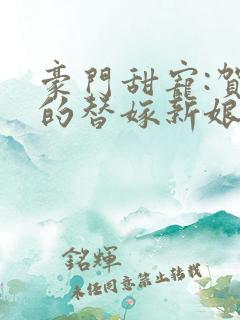 豪門甜寵:賀
的替嫁新娘
銘輝
未任同意禁止转载